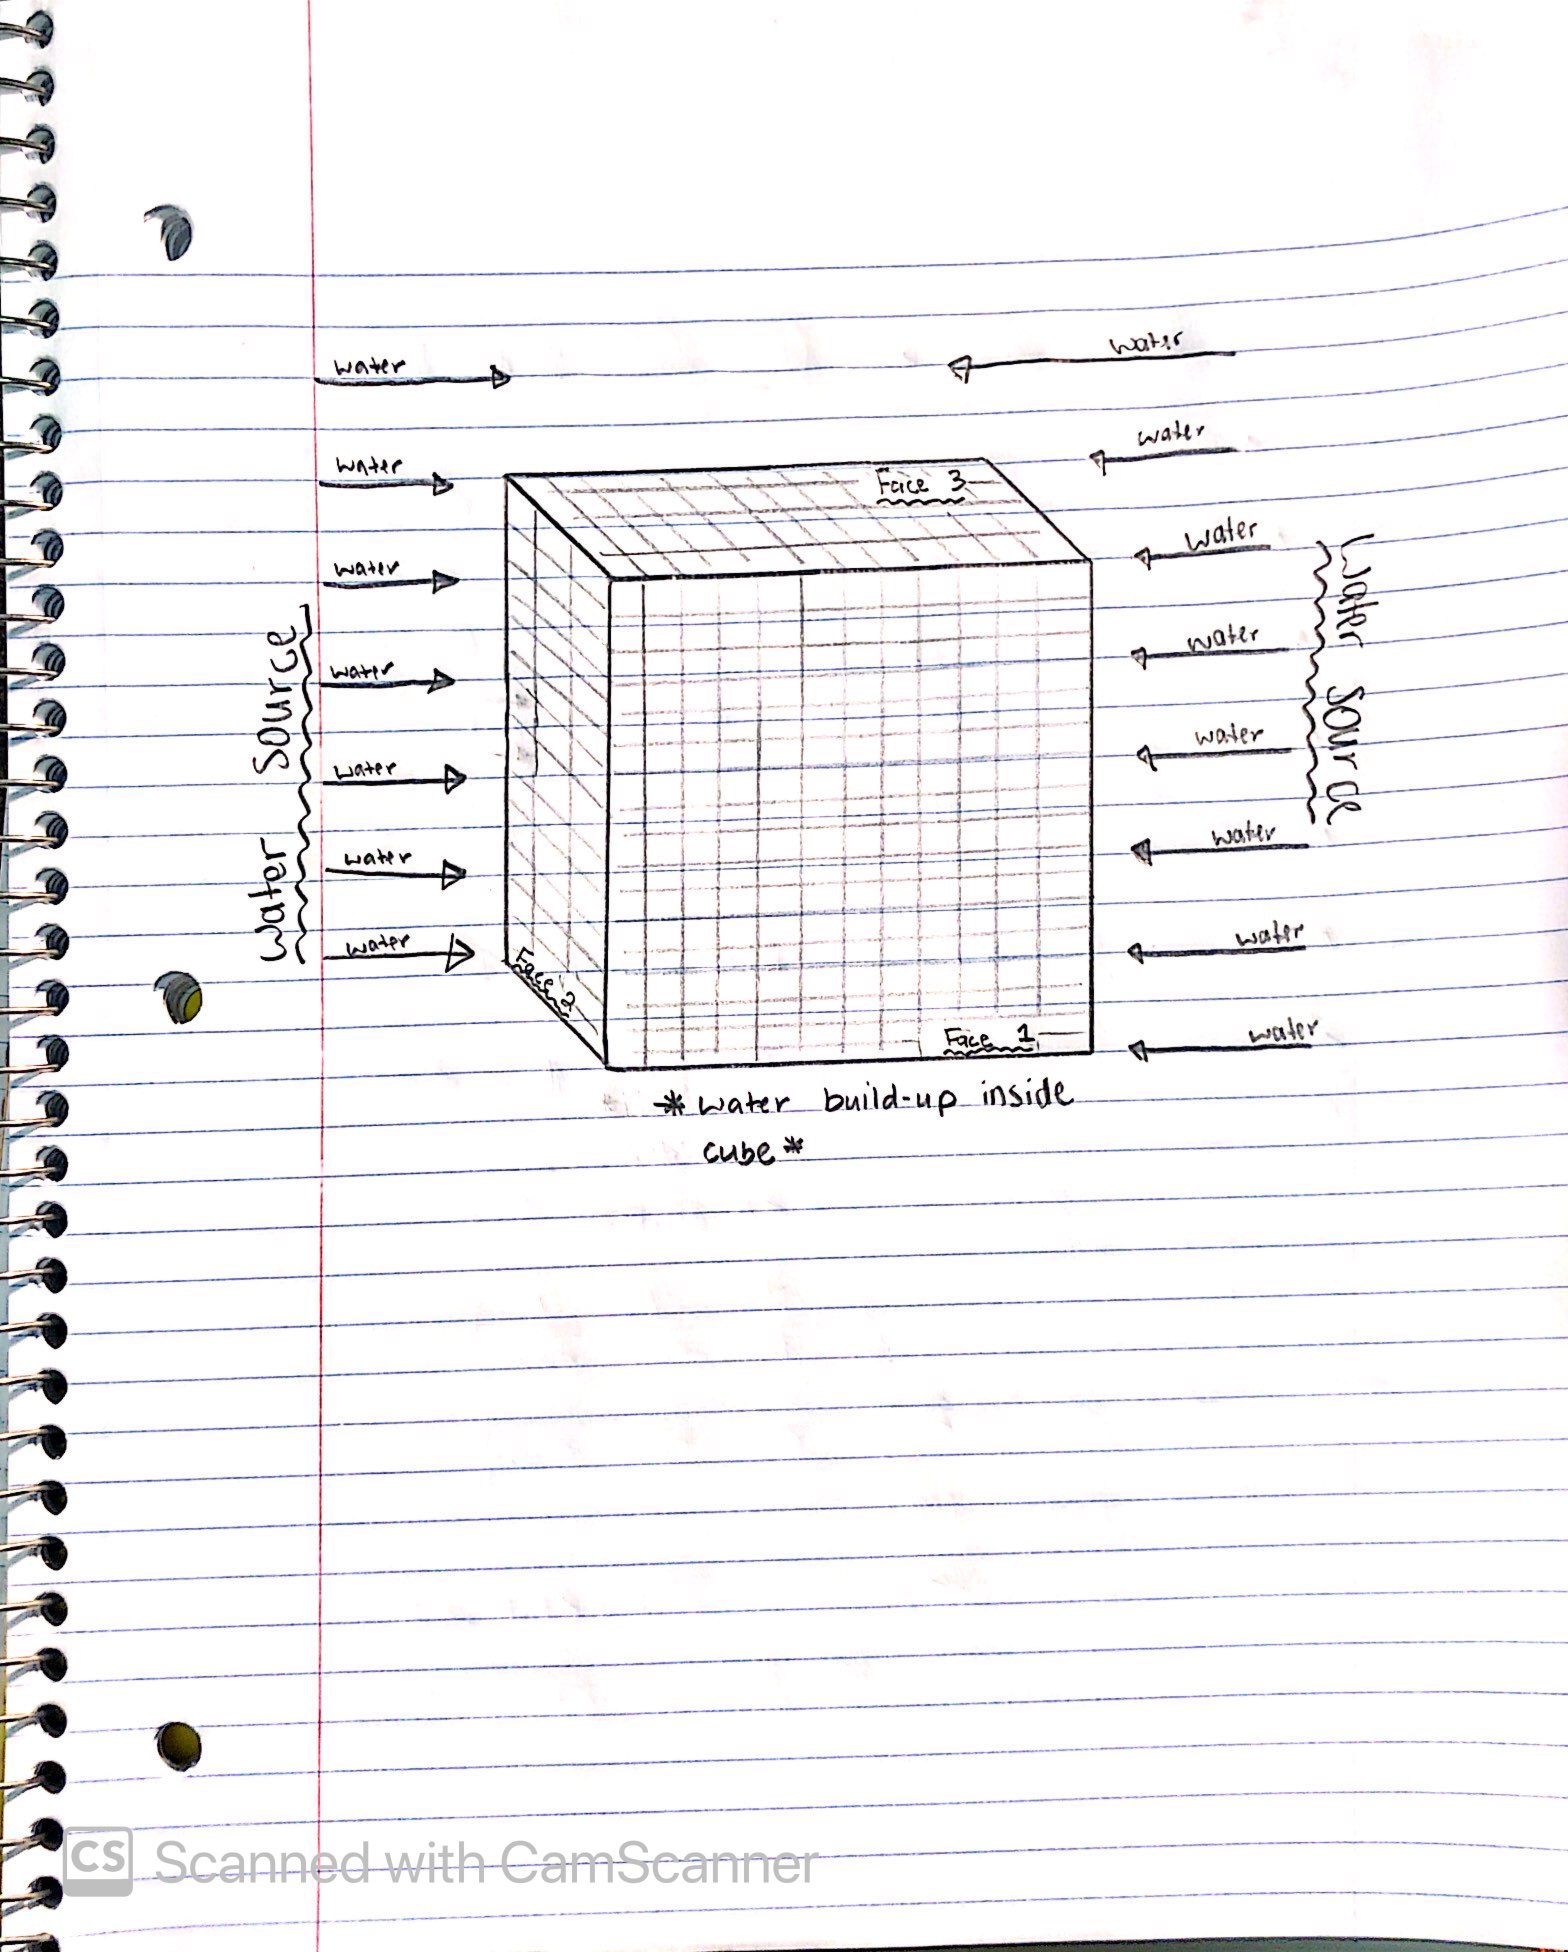 water
water
water
water
Face 3
water
water
water
water
water
water
water
water
water
water
water
water
water
Water Source
Water Source
Face 2
Face 1
* water build-up inside
cube *
CS Scanned with CamScanner